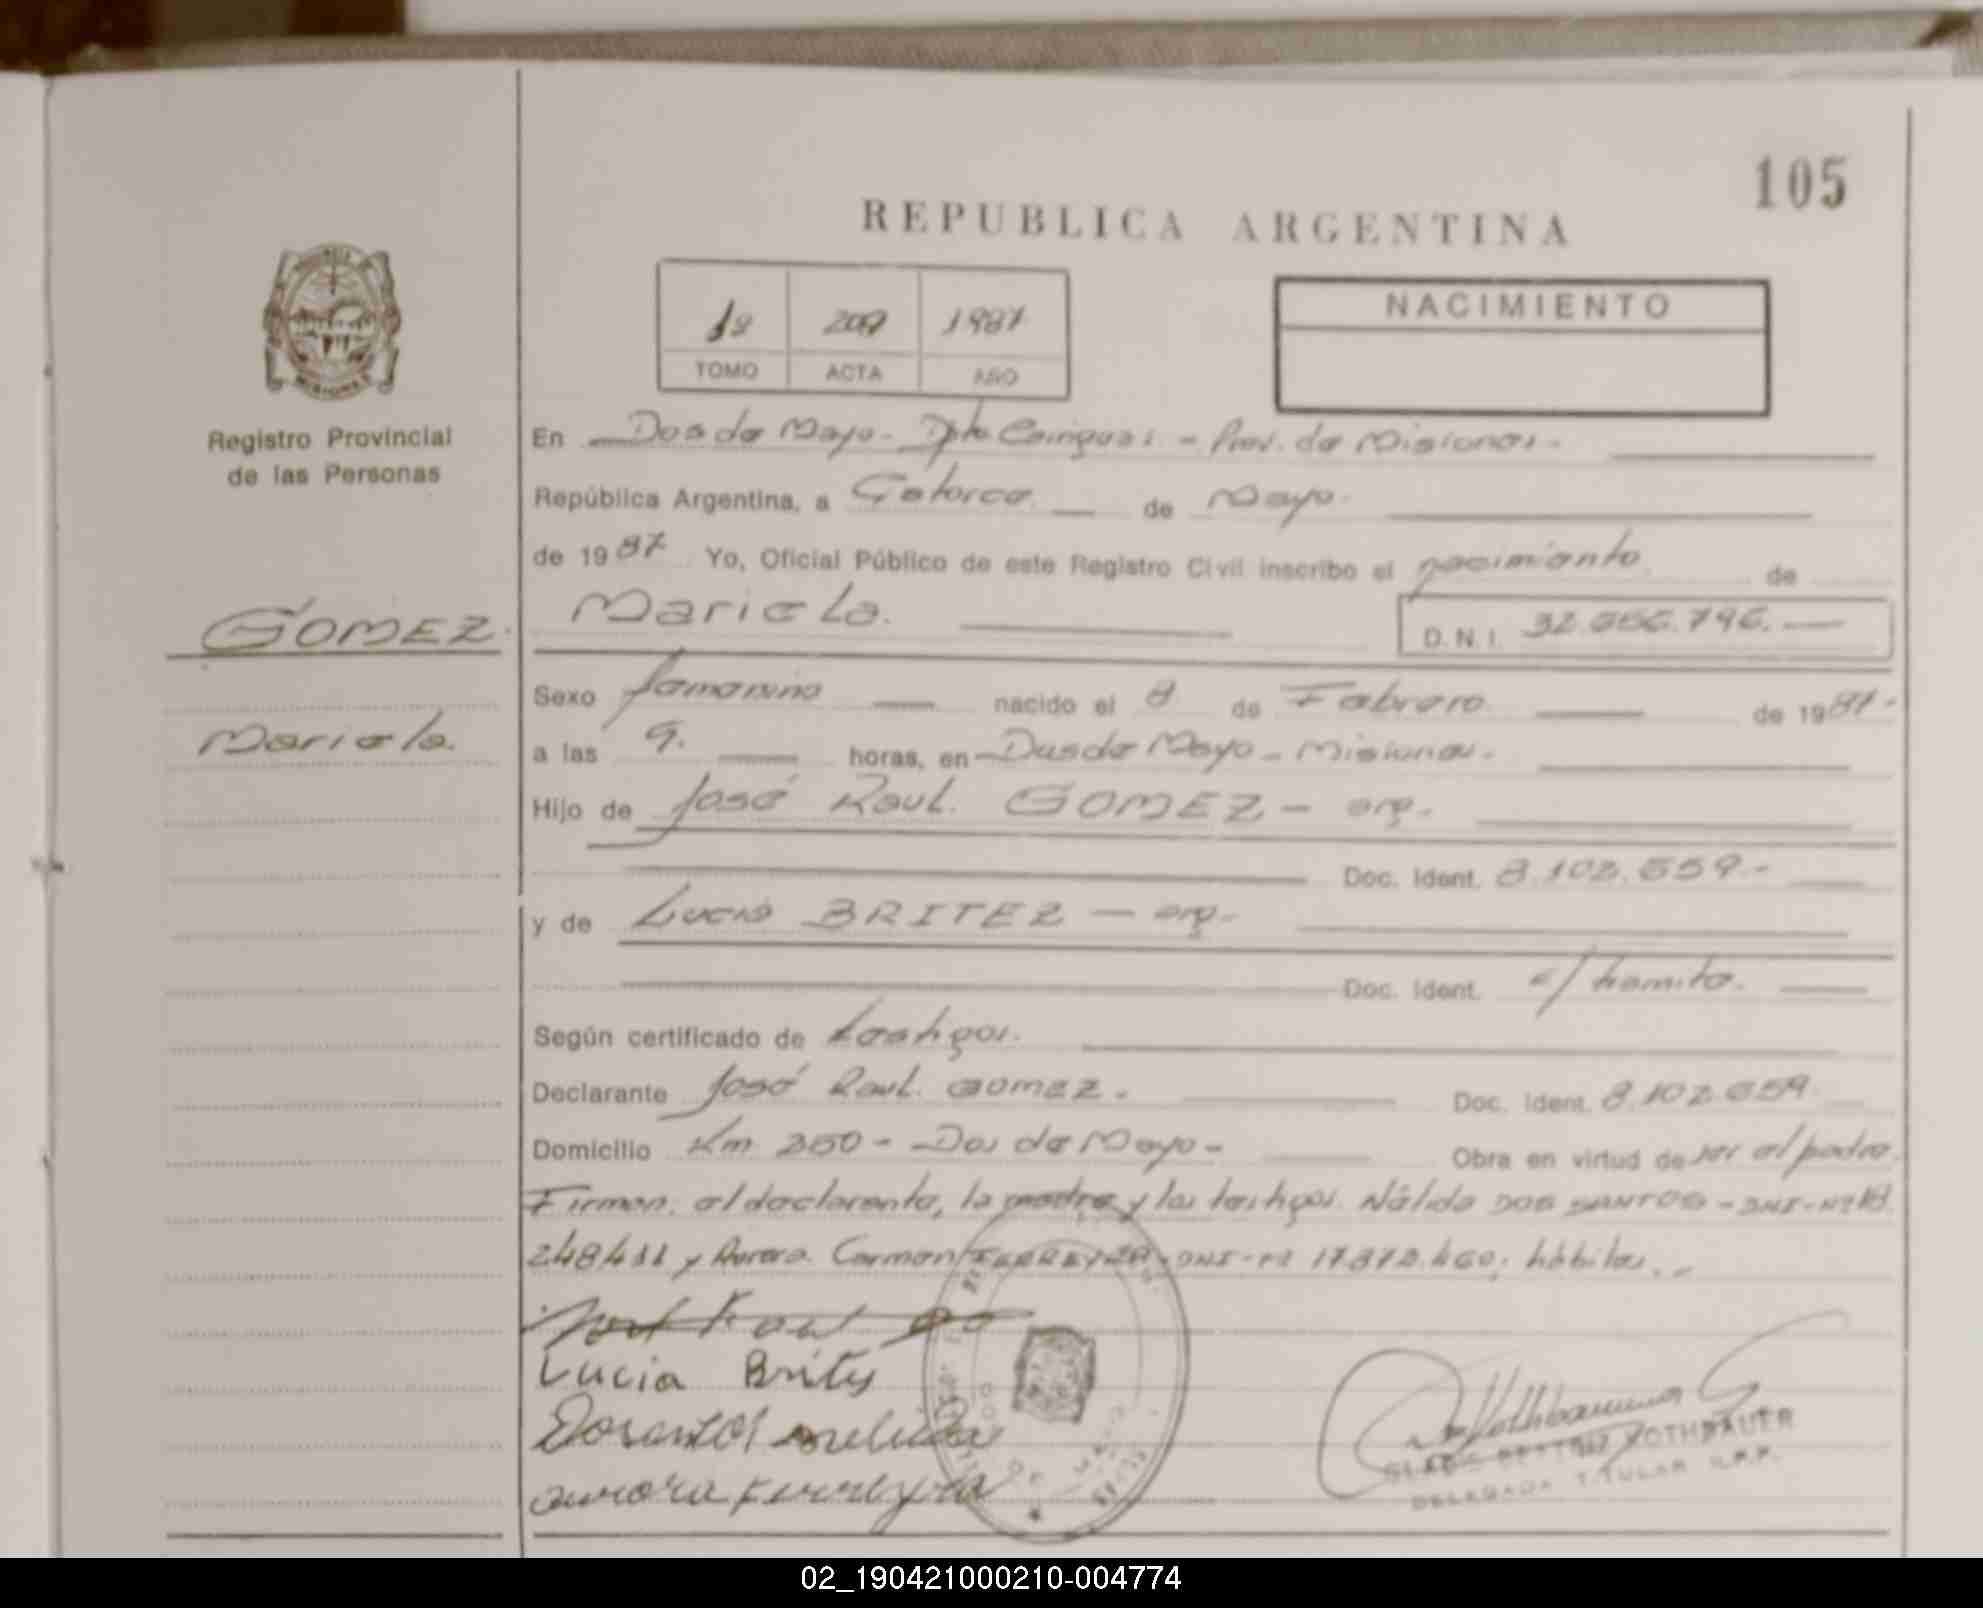 105
REPUBLICA ARGENTINA
1º 209 1987
TOMO ACTA AÑO
NACIMIENTO
Registro Provincial
de las Personas
En Dos de Mayo - Dpto Cainguas - Prov. de Misiones.-
República Argentina, a Catorce de Mayo.
de 1987 Yo, Oficial Público de este Registro Civil inscribo el nacimiento de
GOMEZ.
Mariela.
D.N.I.
Sexo femenino nacido el 8 de Febrero de 1987.-
Mariela.
a las 9. horas, en Dos de Mayo - Misiones.-
Hijo de José Raul. GOMEZ - arg.
Doc. Ident.
y de Lucia BRITEZ - arg.-
Doc. Ident. e/ tramite.
Según certificado de testigos.
Declarante José Raul. GOMEZ.
Doc. Ident.
Domicilio Km 250 - Dos de Mayo - Obra en virtud de ser el padre.
Firman. el declarante, la madre y los testigos. Nélida DOS SANTOS - DNI-Nº 18.
248.411 y Aurora Carmen FERREYRA - DNI-Nº hábiles.-
Lucia Brites
aurora Ferreyra
GLADIS BEATRIZ ROTHBAUER
DELEGADA TITULAR R.P.P.
02_190421000210-004774